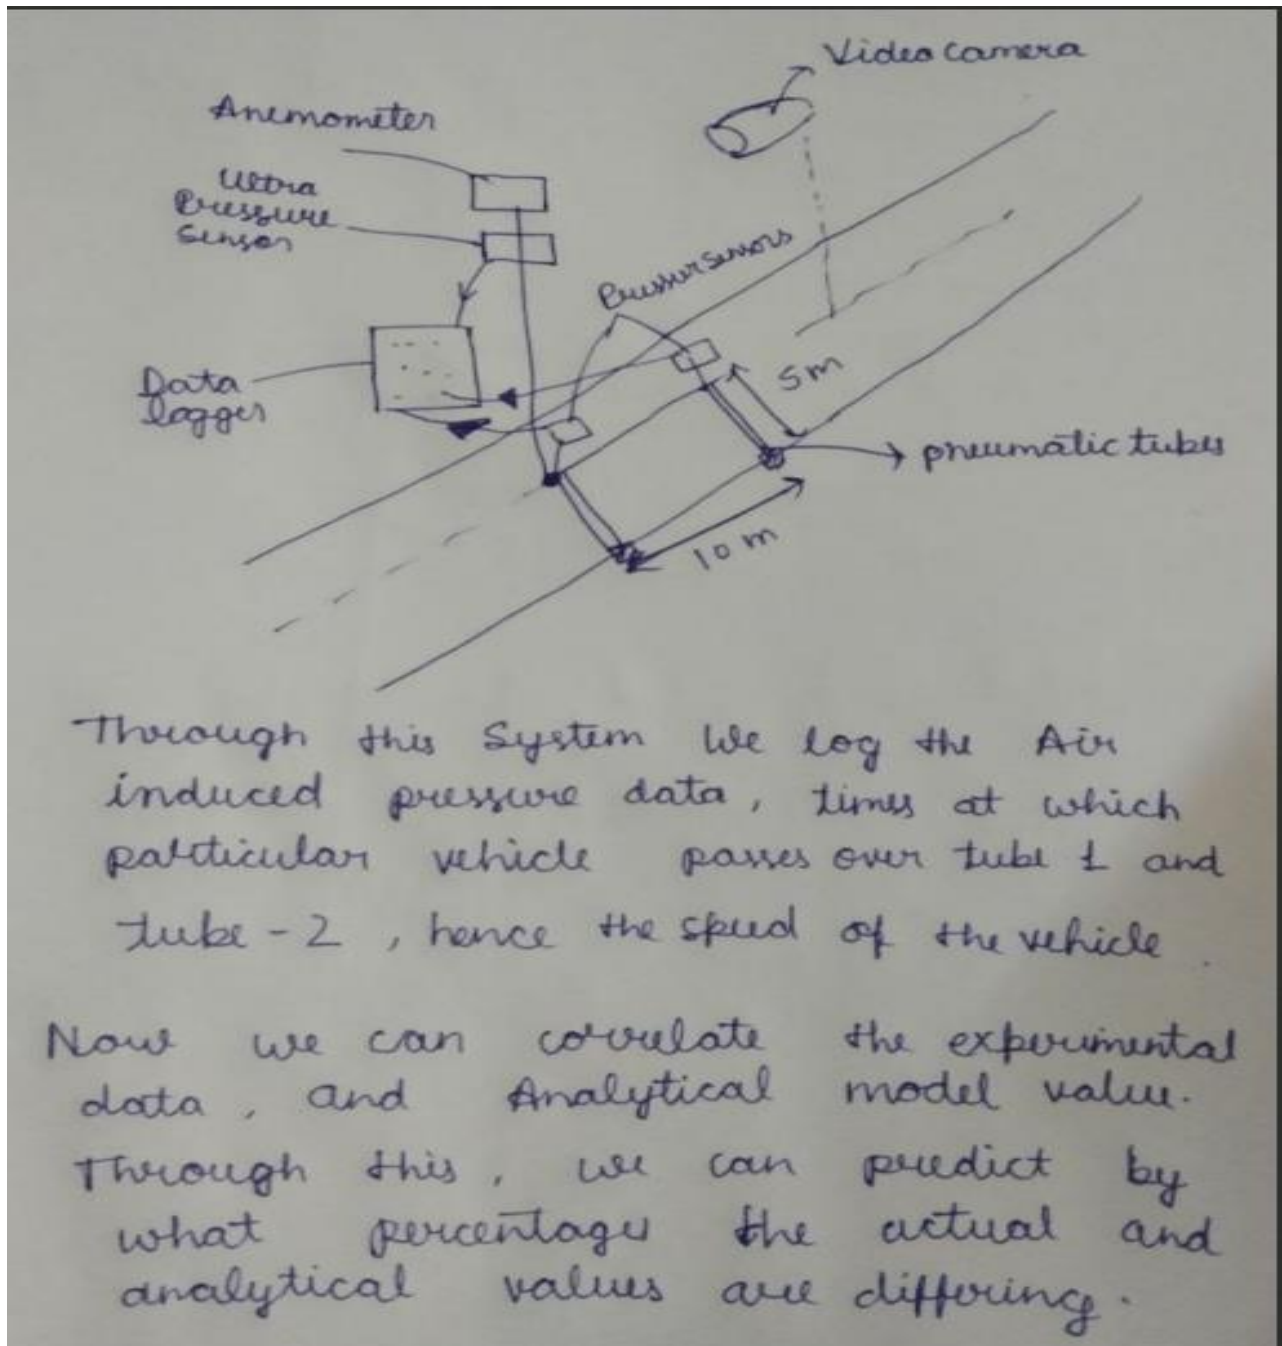 Video camera
Anemometer
Ultra
Pressure
Sensor
Pressursensors
Data
logger
5m
pneumatic tubes
10 m
Through this System We log the Air
induced pressure data, times at which
particular vehicle passes over tube 1 and
tube - 2 , hence the speed of the vehicle .
Now we can correlate the experimental
data , and Analytical model value.
Through this , we can predict by
what percentages the actual and
analytical values are differing.